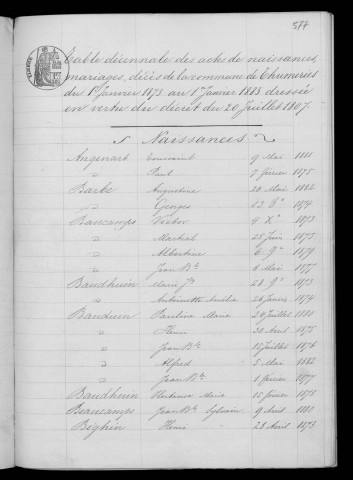 577
Table décennale des actes de naissances,
mariages, décès de la commune de Thumeries
du 1er Janvier 1873 au 1er Janvier 1883 dressée
en vertu du décret du 20 Juillet 1807.
Naissances
Augenart Toussaint 9 Mai 1881
" Paul 7 février 1875
Barbe Augustine 20 Mai 1882
" Georges 13 bre 1874
Baucamps Victor 4 Xbre 1873
" Martial 25 Juin 1875
" Albertine 6 9bre 1879
" Jean Bte 8 Mai 1877
Baudhuin Marie Jh 28 9bre 1873
" Antoinette Amélie 26 Janvier 1874
Bauduin Pauline Marie 20 Juillet 1880
" Henri 30 Avril 1875
" Jean Bte 15 Juillet 1876
" Alfred 5 Mai 1882
" Jean Bte 1 février 1877
Baudhuin Hortense Marie 15 février 1878
Beaucamps Jean Bte Sylvain 9 Avril 1881
Béghin Henri 28 Avril 1873